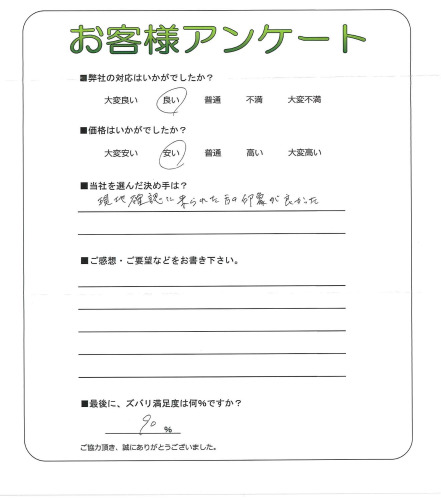 お客様アンケート
■弊社の対応はいかがでしたか?
大変良い 良い 普通 不満 大変不満
■価格はいかがでしたか?
大変安い 安い 普通 高い 大変高い
■当社を選んだ決め手は?
現地確認に来られた時の印象が良かった
■ご感想・ご要望などをお書き下さい。
■最後に、ズバリ満足度は何%ですか?
90 %
ご協力頂き、誠にありがとうございました。